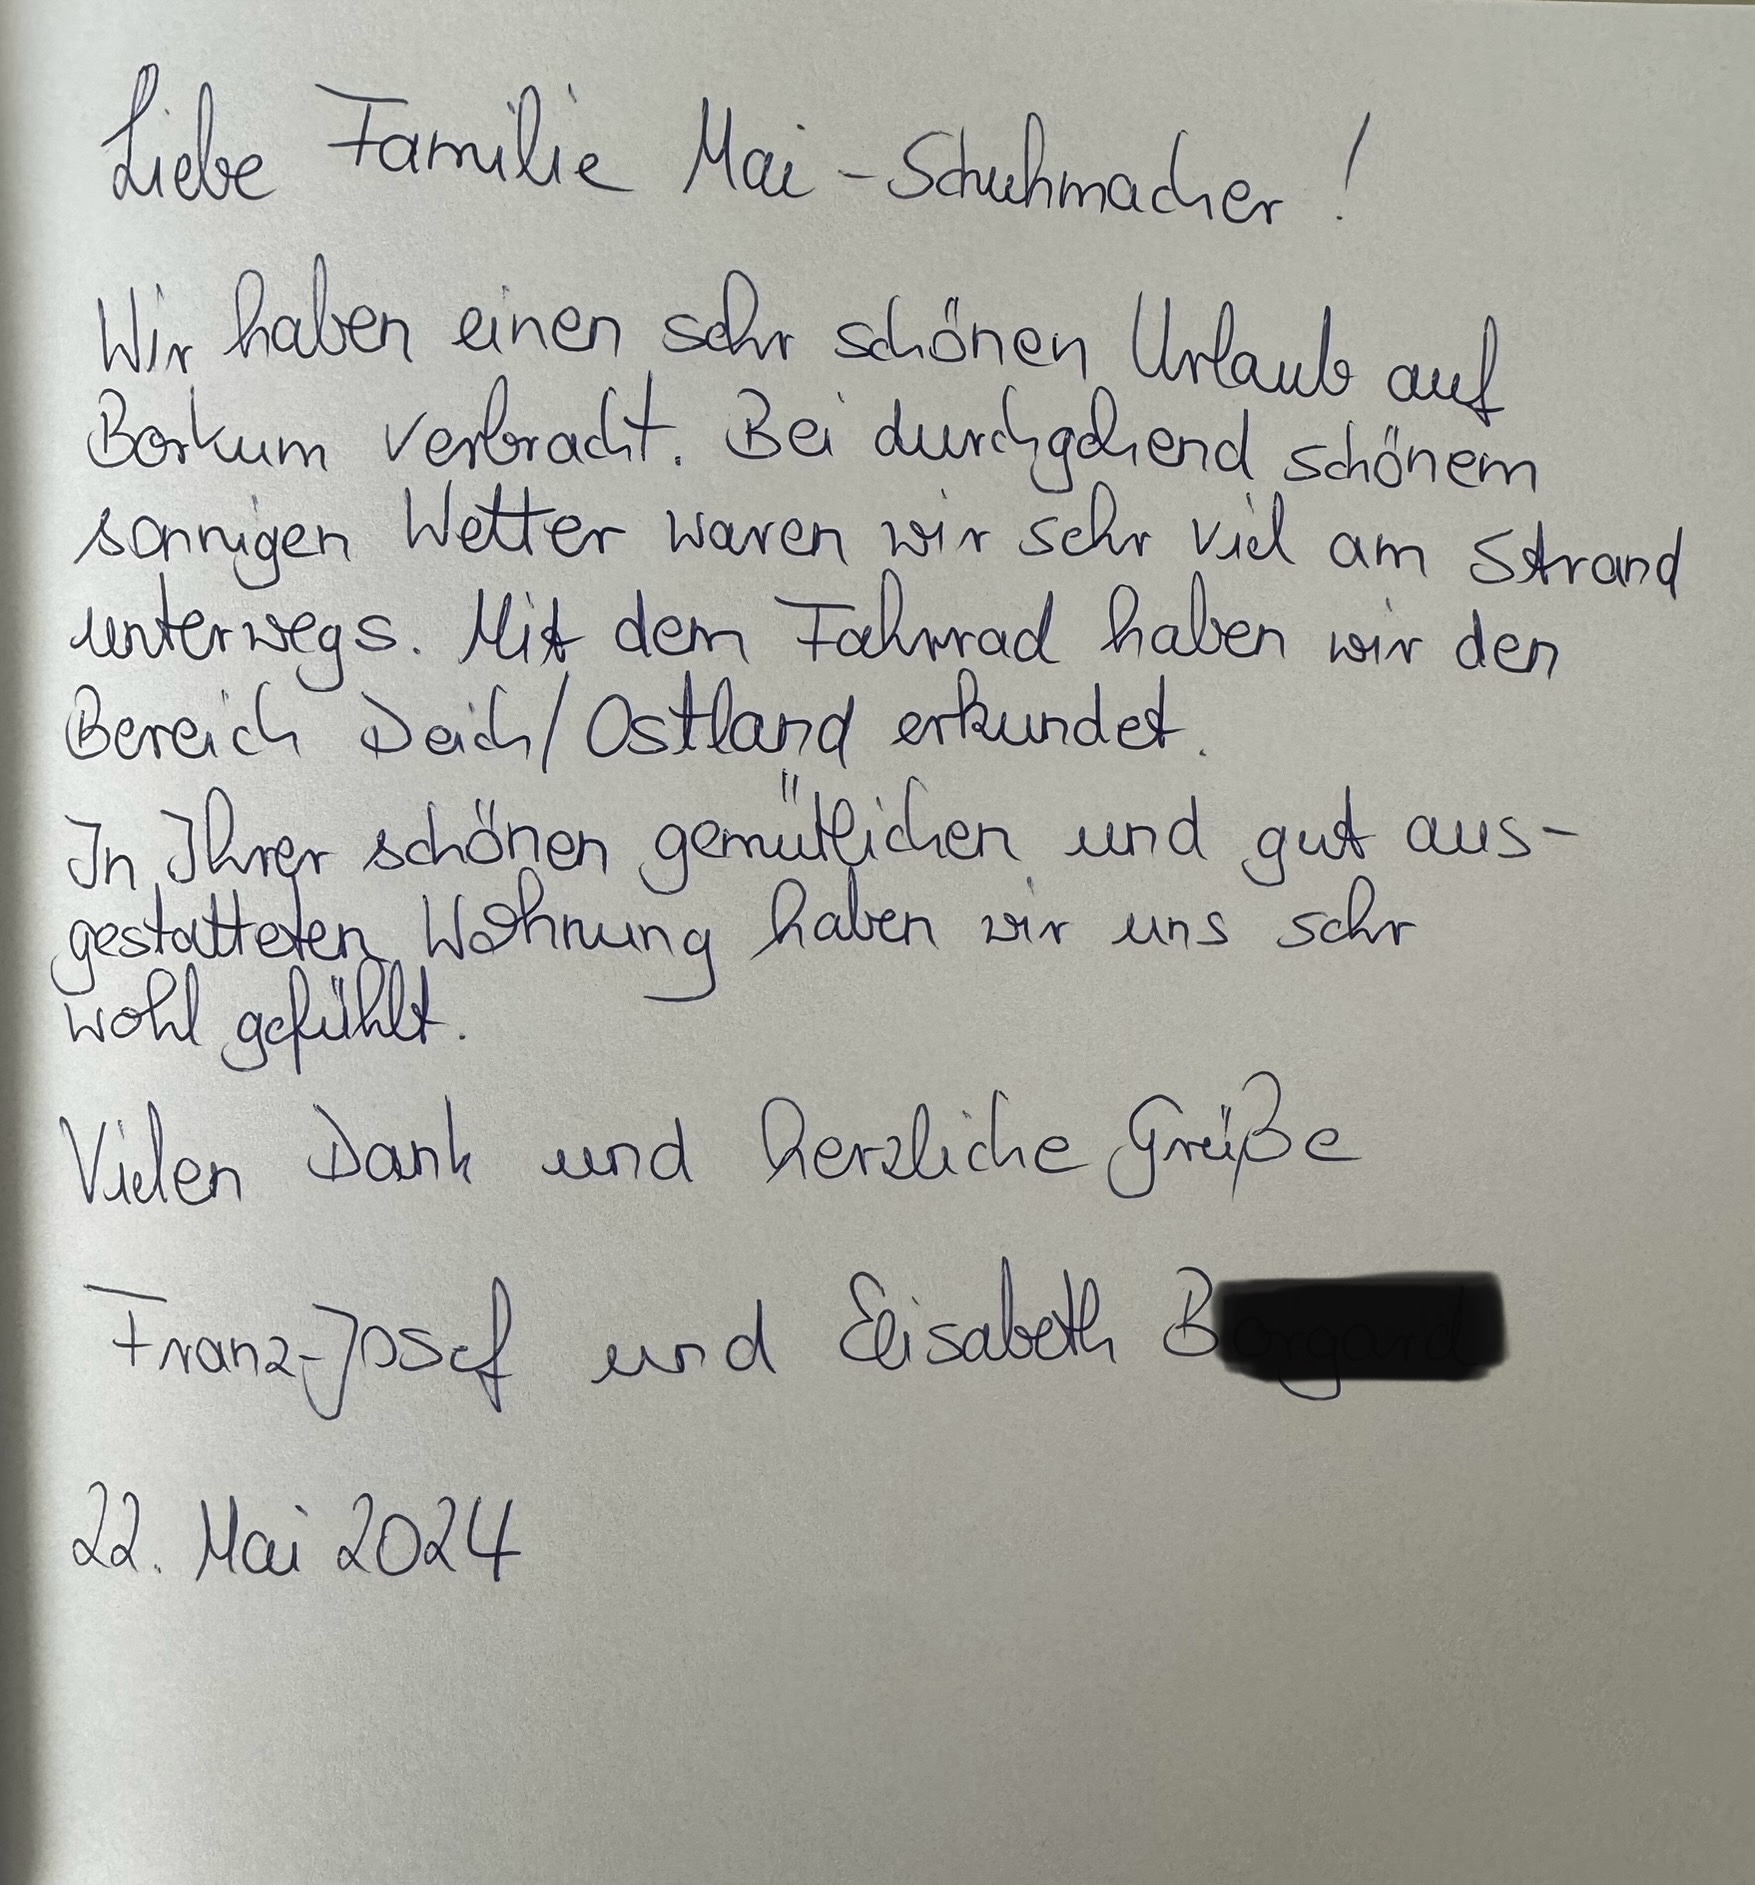 Liebe Familie Mai-Schuhmacher!
Wir haben einen sehr schönen Urlaub auf
Borkum verbracht. Bei durchgehend schönem
sonnigen Wetter waren wir sehr viel am Strand
unterwegs. Mit dem Fahrrad haben wir den
Bereich Deich/Ostland erkundet.
In Ihrer schönen gemütlichen und gut aus-
gestatteten Wohnung haben wir uns sehr
wohl gefühlt.
Vielen Dank und herzliche Grüße
Franz-Josef und Elisabeth B
22. Mai 2024